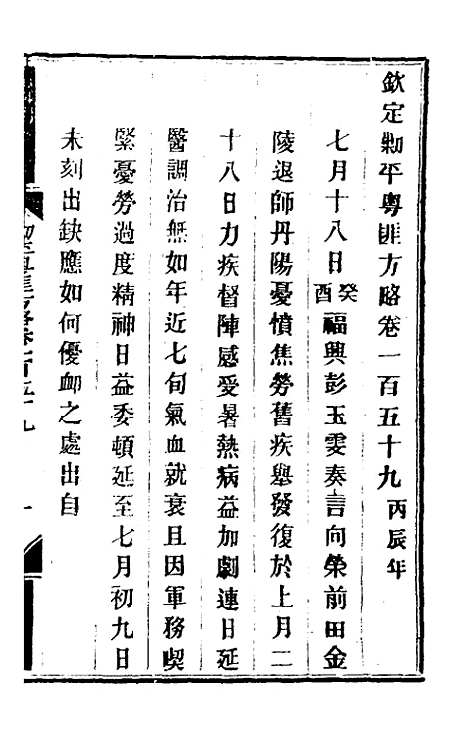 欽定勦平粵匪方略卷一百五十九丙辰年
七月十八日癸酉福興彭玉雯奏言向榮前由金
陵退師丹陽憂憤焦勞舊疾舉發復於上月二
十八日力疾督陣感受暑熱病益加劇連日延
醫調治無如年近七旬氣血就衰且因軍務喫
緊憂勞過度精神日益委頓延至七月初九日
未刻出缺應如何優卹之處出自